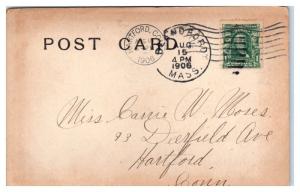 POST CARD
HARTFORD, CO
1906
AUG
15
4 PM
1906
MASS.
Miss Carrie W. Moses.
93 Deerfield Ave
Hartford,
Conn